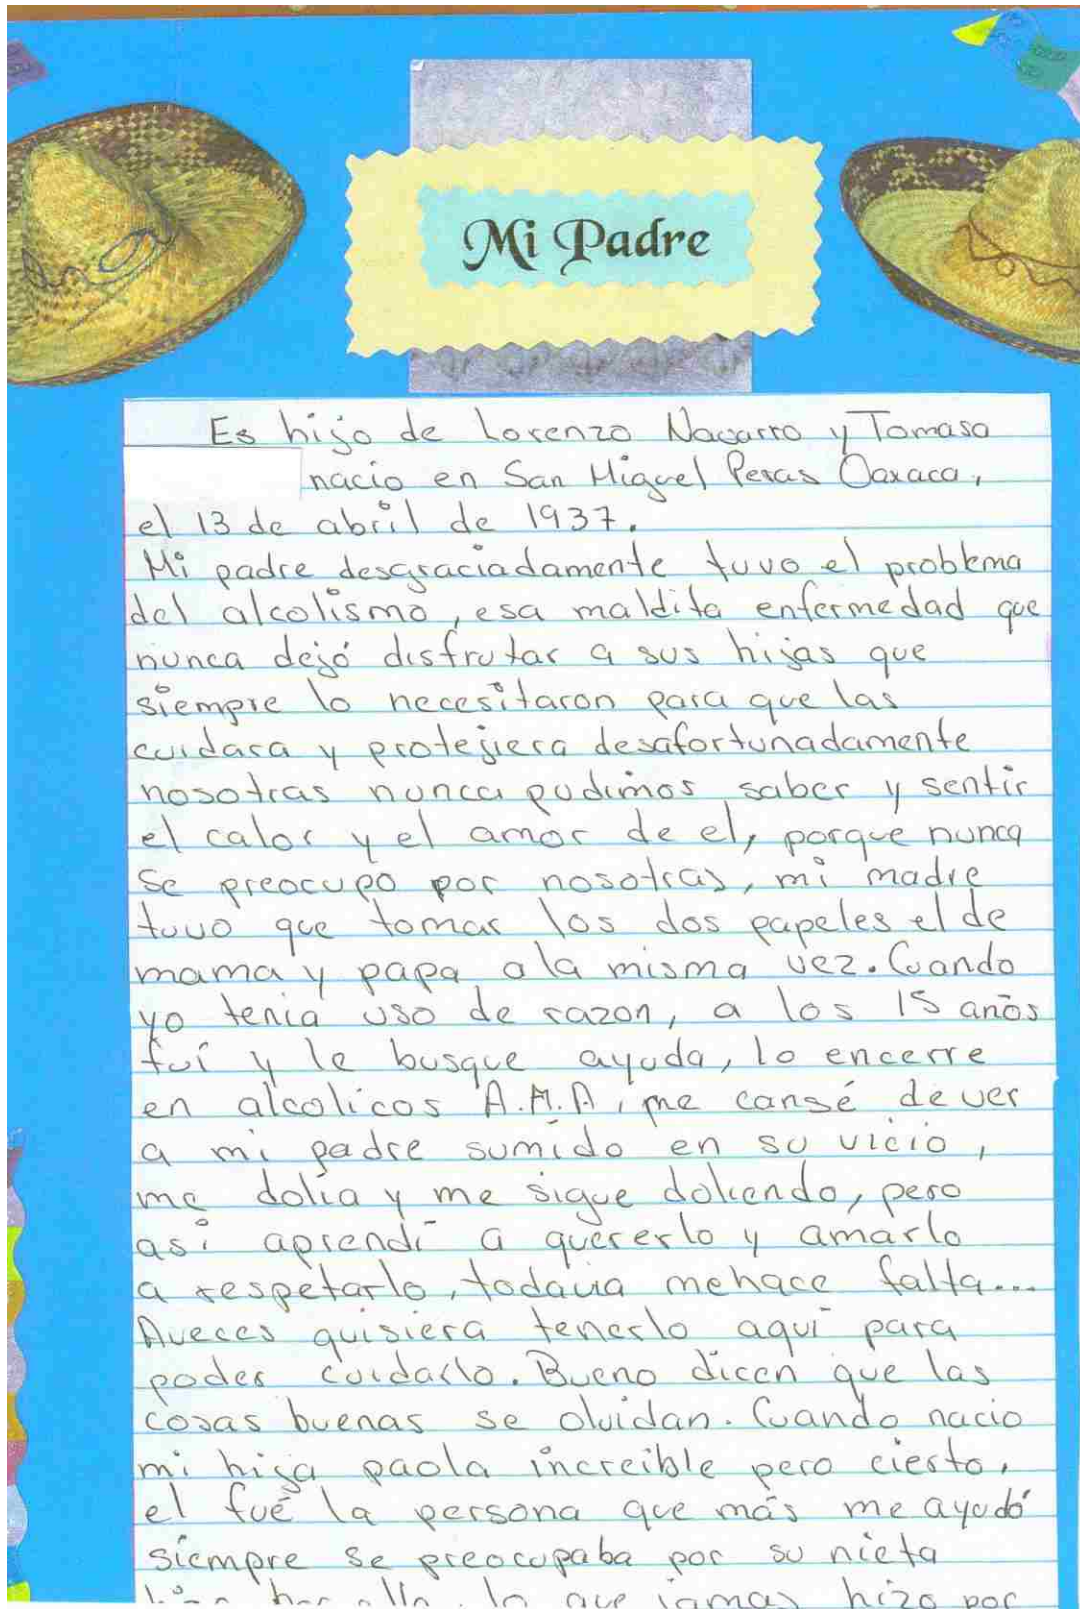 Mi Padre
Es hijo de Lorenzo Navarro y Tomasa
nacio en San Miguel Peras Oaxaca,
el 13 de abril de 1937.
Mi padre desgraciadamente tuvo el problema
del alcolismo, esa maldita enfermedad que
nunca dejó disfrutar a sus hijas que
siempre lo necesitaron para que las
cuidara y protejiera desafortunadamente
nosotras nunca pudimos saber y sentir
el calor y el amor de el, porque nunca
se preocupo por nosotras, mi madre
tuvo que tomar los dos papeles el de
mama y papa a la misma vez. Cuando
yo tenia uso de razon, a los 15 años
fuí y le busque ayuda, lo encerre
en alcolicos A.M.A, me cansé de ver
a mi padre sumido en su vicio,
me dolia y me sigue doliendo, pero
asi aprendi a quererlo y amarlo
a respetarlo, todavia me hace falta...
Aveces quisiera tenerlo aquí para
poder cuidarlo. Bueno dicen que las
cosas buenas se olvidan. Cuando nacio
mi hija paola increible pero cierto,
el fué la persona que más me ayudó
siempre se preocupaba por su nieta
lo que jamas hizo por